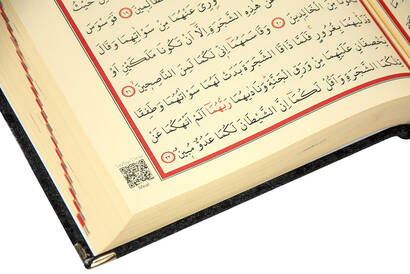 وُرِيَ عَنْهُمَا مِنْ سَوْاٰتِهِمَا وَقَالَ
هٰذِهِ الشَّجَرَةِ اِلَّٓا اَنْ تَكُونَا مَلَكَيْنِ اَوْ
نَا مِنَ الْخَالِدٖينَ ﴿٢٠﴾ وَقَاسَمَهُمَٓا اِنّٖي لَكُمَا لَمِنَ النَّاصِحٖينَ ﴿٢١﴾
فَدَلّٰيهُمَا بِغُرُورٍ فَلَمَّا ذَاقَا الشَّجَرَةَ بَدَتْ لَهُمَا سَوْاٰتُهُمَا وَطَفِقَا
يَخْصِفَانِ عَلَيْهِمَا مِنْ وَرَقِ الْجَنَّةِ وَنَادٰيهُمَا رَبُّهُمَٓا اَلَمْ اَنْهَكُمَا عَنْ
تِلْكُمَا الشَّجَرَةِ وَاَقُلْ لَكُمَٓا اِنَّ الشَّيْطَانَ لَكُمَا عَدُوٌّ مُبٖينٌ ﴿٢٢﴾